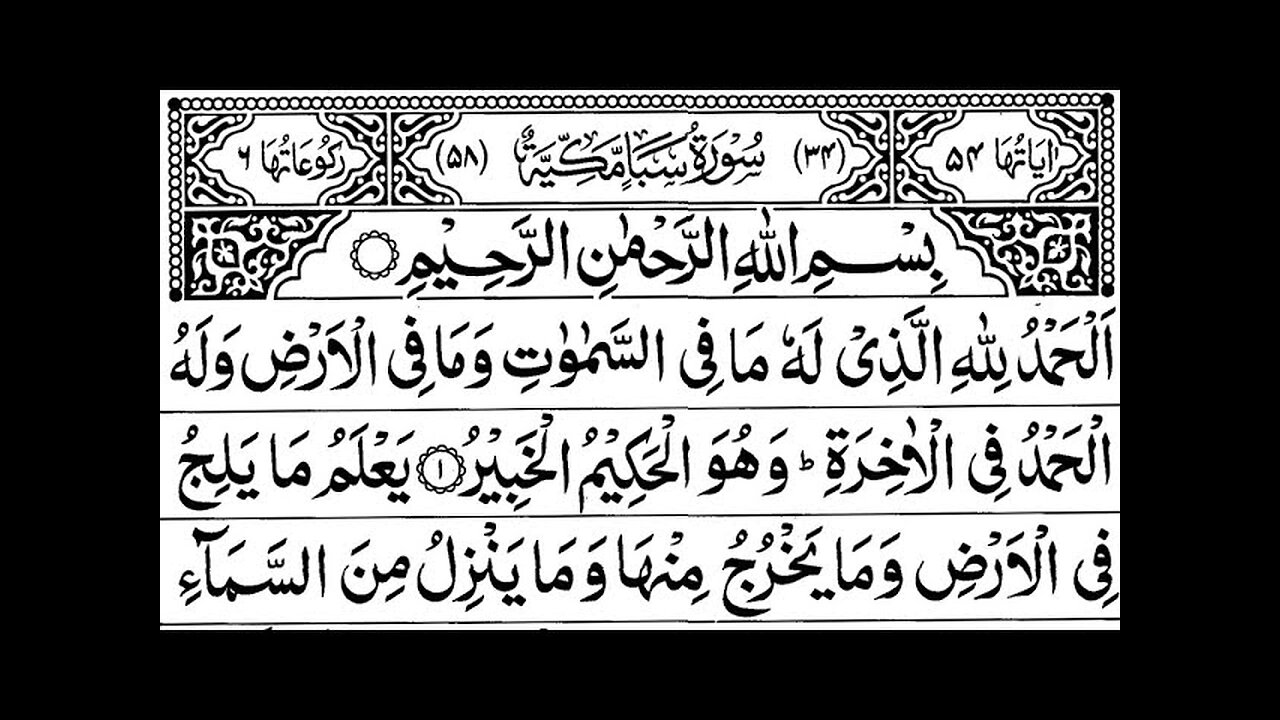 اٰیَاتُهَا ۵۴ (۳۴) سُوْرَةُ سَبَاٍ مَّكِّيَّةٌ (۵۸) رُكُوْعَاتُهَا ۶
بِسْمِ اللّٰهِ الرَّحْمٰنِ الرَّحِيْمِ
اَلْحَمْدُ لِلّٰهِ الَّذِیْ لَهٗ مَا فِی السَّمٰوٰتِ وَمَا فِی الْاَرْضِ وَلَهُ
الْحَمْدُ فِی الْاٰخِرَةِ ؕ وَهُوَ الْحَكِیْمُ الْخَبِیْرُ ۝۱ یَعْلَمُ مَا یَلِجُ
فِی الْاَرْضِ وَمَا یَخْرُجُ مِنْهَا وَمَا یَنْزِلُ مِنَ السَّمَآءِ